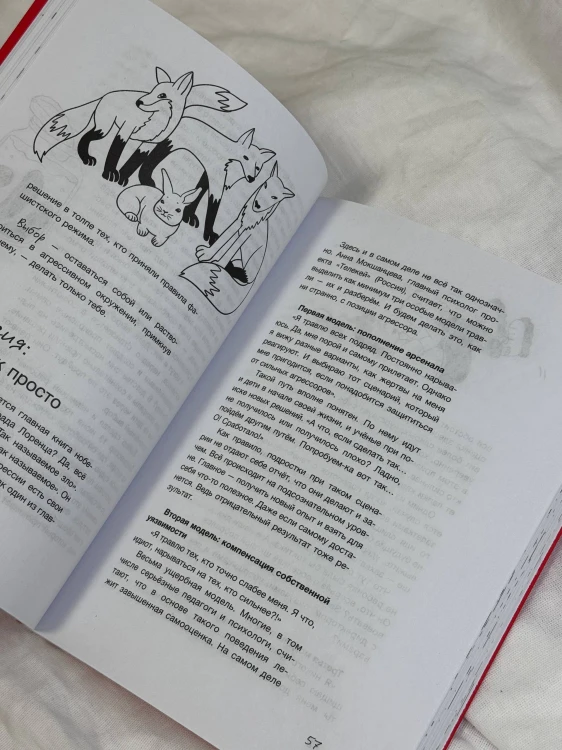 решение в толпе тех, кто приняли правила фа-
шистского режима.
Выбор — оставаться собой или раство-
риться в агрессивном окружении, примкнув
нему, — делать только тебе.
просто
ется главная книга нобе-
рада Лоренца? Да, всё
Так называемое зло-
ак называемое». Он
рессии есть свои
к один из глав-
Здесь и в самом деле не всё так однознач-
но. Анна Мокшанцева, главный психолог про-
екта «Телекей» (Россия), считает, что можно
выделить как минимум три особые модели трав-
ли — их и разберём. И будем делать это, как
ни странно, с позиции агрессора.
Первая модель: пополнение арсенала
«Я травлю всех подряд. Постоянно нарыва-
юсь. Да, мне порой и самому прилетает. Однако
я вижу разные варианты, как жертвы на меня
реагируют. И выбираю тот сценарий, который
мне пригодится, если понадобится защититься
от сильных агрессоров».
Такой путь вполне понятен. По нему идут
и дети в начале своей жизни, и учёные при по-
иске новых решений. «А что, если сделать так...
не получилось или получилось плохо? Ладно,
пойдём другим путём. Попробуем-ка вот так...
О! Сработало!»
Как правило, подростки при таком сцена-
рии не отдают себе отчёт, что они делают и за-
чем. Всё происходит на подсознательном уров-
не. Главное — получить новый опыт и взять для
себя что-то полезное. Даже если самому доста-
нется. Ведь отрицательный результат тоже ре-
зультат.
Вторая модель: компенсация собственной
уязвимости
«Я травлю тех, кто точно слабее меня. Я что,
идиот, нарываться на тех, кто сильнее?!»
Весьма ущербная модель. Многие, в том
числе серьёзные педагоги и психологи, счи-
тают, что в основе такого поведения ле-
жит завышенная самооценка. На самом деле
57